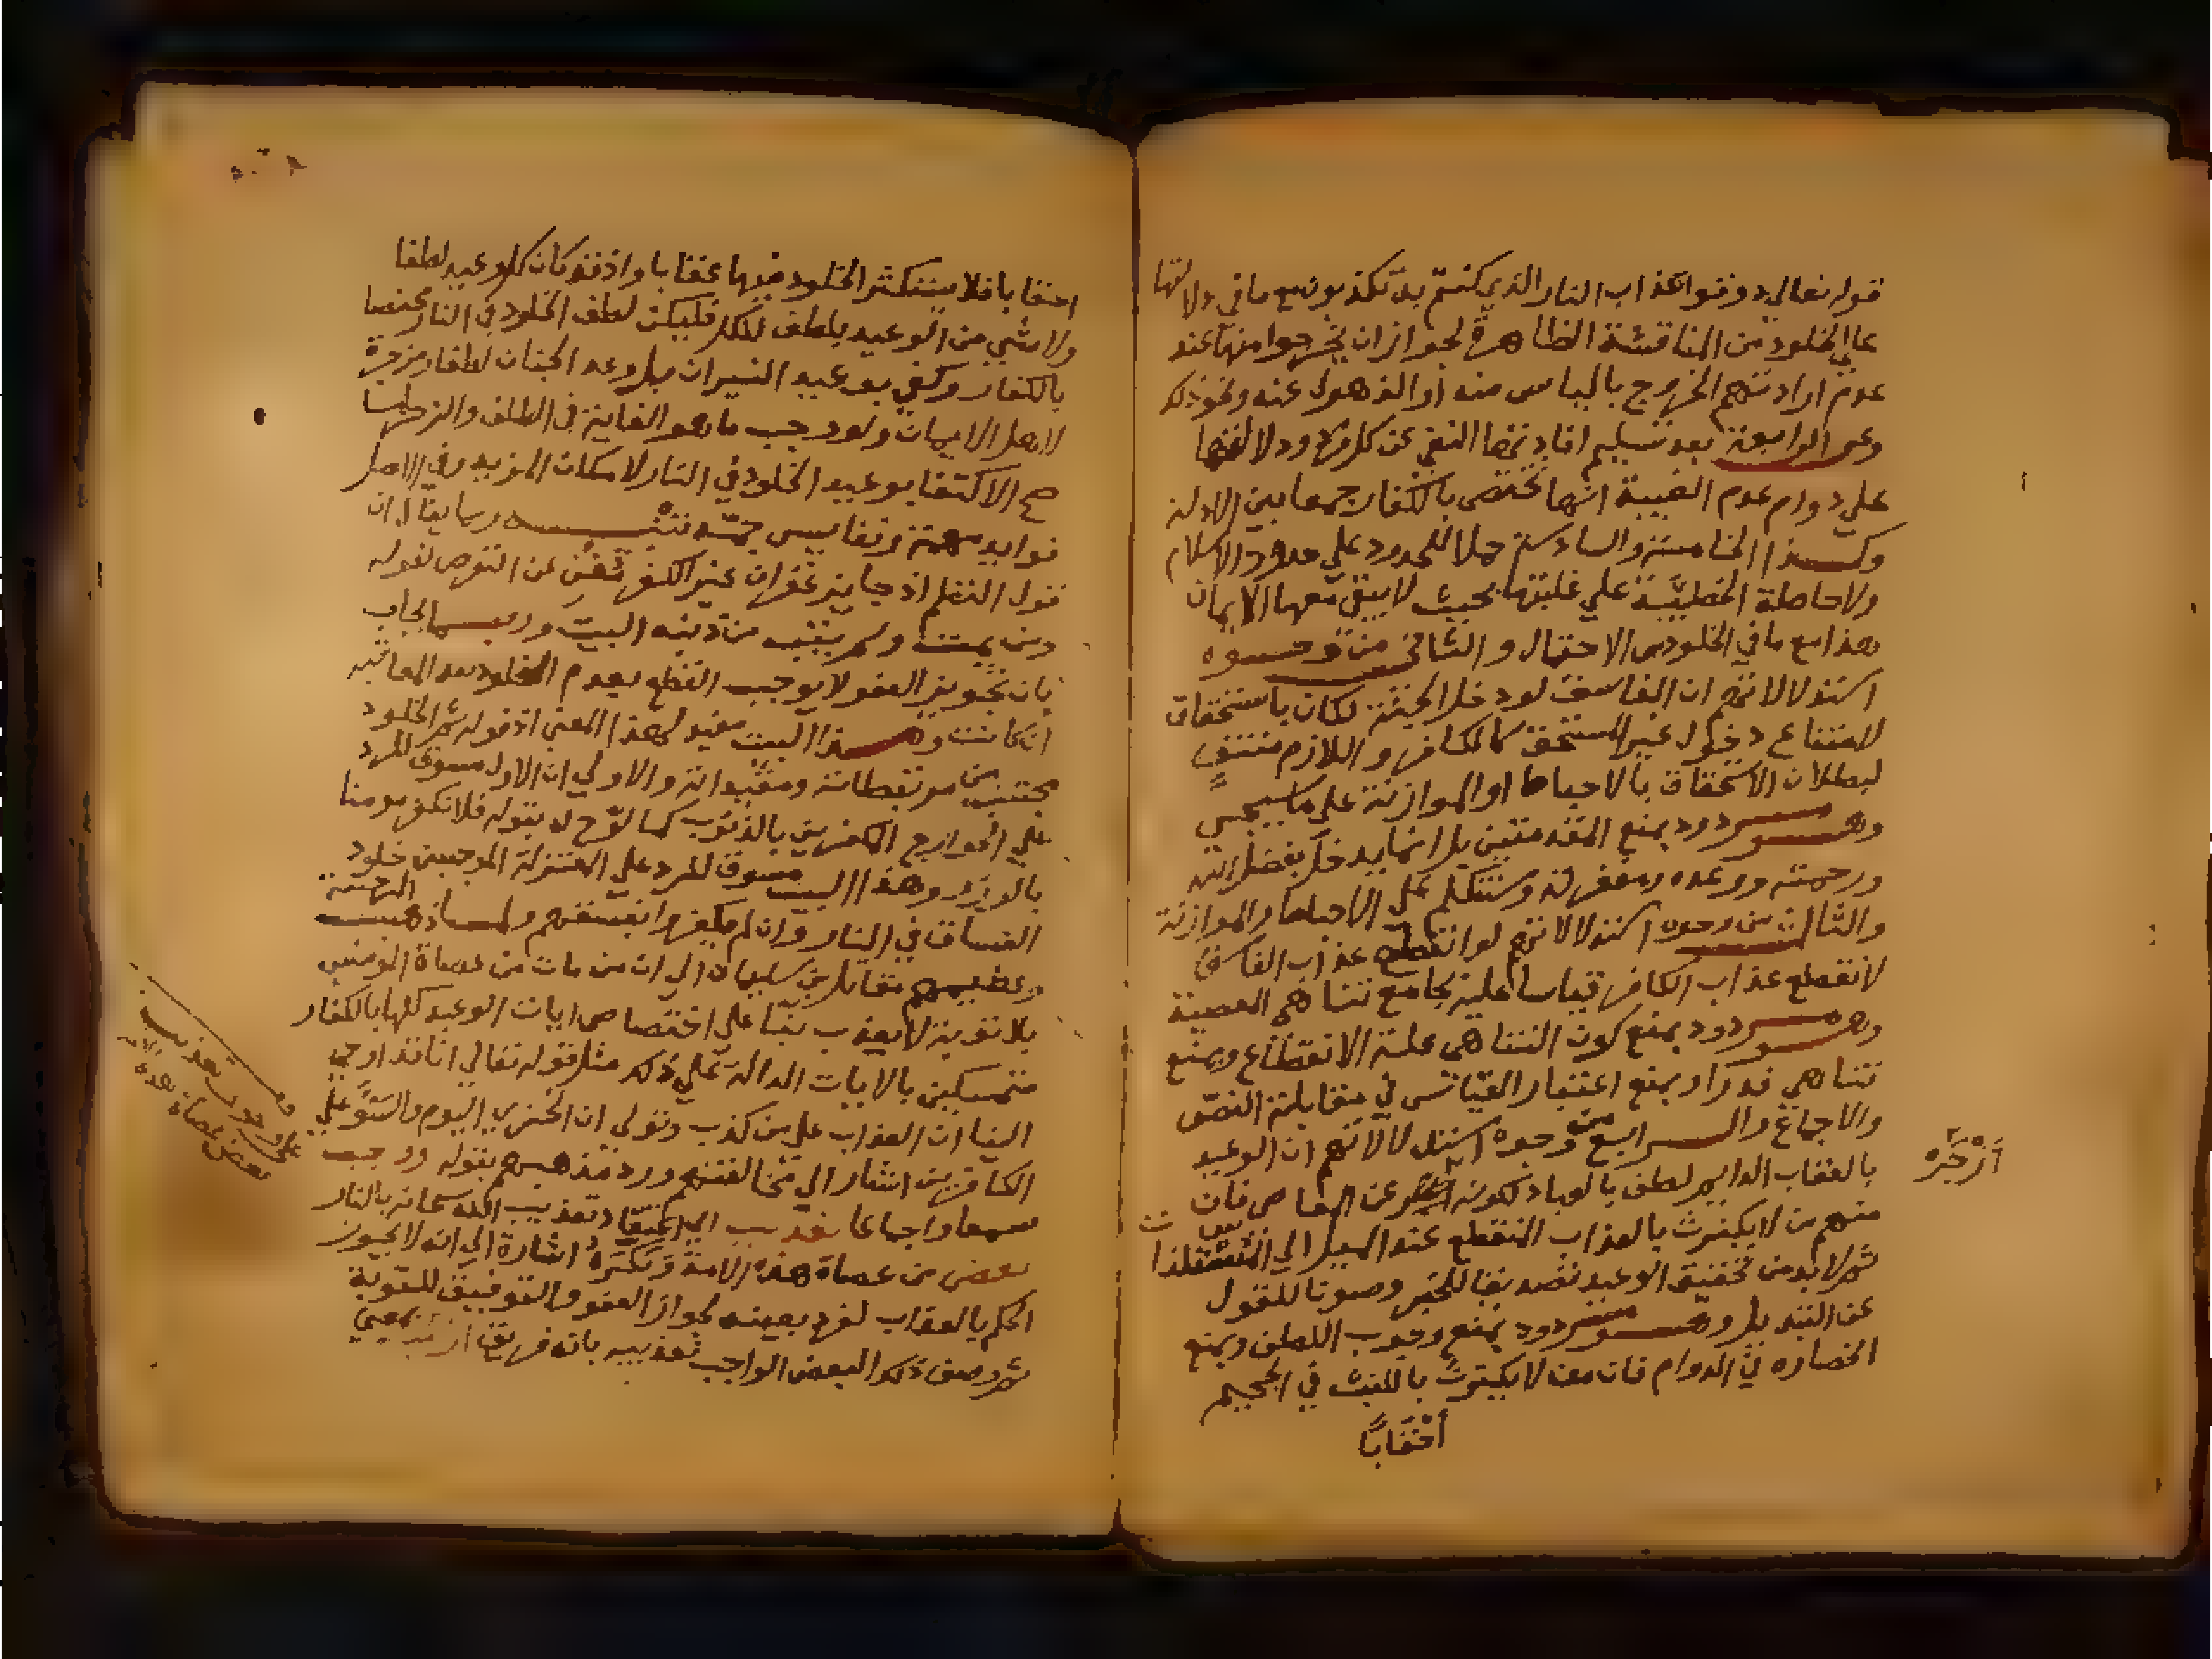 قوله تعالي ذوقوا عذاب النار الذي كنتم به تكذبون مع ما في دلالتها
علي الخلود من المناقشة الظاهرة لجواز ان يخرجوا منها عند
عدم ارادتهم الخروج بالياس منه او الذهول عنه ونحو ذلك
وعن الرابعة بعد تسليم افادتها النفي عن كل فرد ودلالتها
علي دوام عدم الغيبة انها تختص بالكفار جمعا بين الادلة
وكذا الخامسة والسادسة حملا للحدود علي حدود الاسلام
ولاحاطة الخطيئة علي غلبتها بحيث لا يبقي معها الايمان
هذا مع ما في الخلود من الاحتمال والثاني من وجوه
استدلالاتهم ان الفاسق لو دخل الجنة لكان باستحقاق
لامتناع دخول غير المستحق كالكافر واللازم منتفٍ
لبطلان الاستحقاق بالاحباط او الموازنة علي ما سيجيي
وهو مردود بمنع المقدمتين بل انما يدخل بفضل الله
ورحمته ووعده ومغفرته وسنتكلم علي الاحباط والموازنة
والثالث من وجوه استدلالاتهم لو انقطع عذاب الفاسق
لانقطع عذاب الكافر قياسا عليه بجامع تناهي المعصية
وهو مردود بمنع كون التناهي علة الانقطاع وبمنع
تناهي قدرا وبمنع اعتبار القياس في مقابلة النص
والاجماع والرابع من وجوه استدلالاتهم ان الوعيد
بالعقاب الدايم لطف بالعباد لكونه عن المعاصي فان
أزجره
منهم من لا يكترث بالعذاب المنقطع عند الميل الي المستلذات
ثم لا بد من تحقيق الوعيد تصديقا للخبر وصونا للقول
عن التبديل وهو مردود بمنع وجوب اللطف وبمنع
انحصاره في الدوام فان من لا يكترث باللبث في الجحيم
أحقابًا
احقابا فلا يستكثر الخلود فيها عقابا واذ قد كان كل وعيد لطفا
ولا شي من الوعيد بلطف للكل فليكن لطف الخلود في النار مختصا
بالكفار وكفي بوعيد النيران بل وعد الجنان لطفا ومزجرة
لاهل الايمان ولو وجب ما هو الغاية في اللطف والزجر لما
صح الاكتفا بوعيد الخلود في النار لامكان المزيد وفي الاصل
فوايد مهمة ونفايس جمة تنبيه وربما يقال ان
قول النظم اذ جايز غفران غير الكفر يغني عن التعرض لقوله
ومن يمت ولم يتب من ذنبه البيت وربما يجاب
بان تجويز العفو لا يوجب القطع بعدم الخلود بعد المعاقبة
ان كانت وهذا البيت مفيد لهذا المعني اذ قوله ثم الخلود
مجتنب من مرتبطاته ومقيداته والاولي ان الاول مسوق للرد
علي الخوارج المكفرين بالذنوب كما لوّح له بقوله فلا نكفر مومنا
بالوزر وهذا البيت مسوق للرد علي المعتزلة الموجبين خلود
الفساق في النار وان لم يكفروا بفسقهم ولما ذهبت المرجئة
وعظيمهم مقاتل بن سليمان الي ان من مات من عصاة المومنين
بلا توبة لا يعذب بنا علي اختصاص ايات الوعيد كلها بالكفار
متمسكين بالايات الدالة علي ذلك مثل قوله تعالي انا قد اوحي
الينا ان العذاب علي من كذب وتولي ان الخزي اليوم والسوء علي
الكافرين اشار الي مخالفتهم ورد مذهبهم بقوله وواجب
سمعا واجماعا تعذيب اي اعتقاد تعذيب الله سبحانه بالنار
بعض من عصاة هذه الامة ونكّره اشارة الي انه لا يجوز
الحكم بالعقاب لفرد بعينه لجواز العفو والتوفيق للتوبة
ثم وصف ذلك البعض الواجب تعذيبه بانه فريق بمعني
تعذيب
بعض عصاة هذه